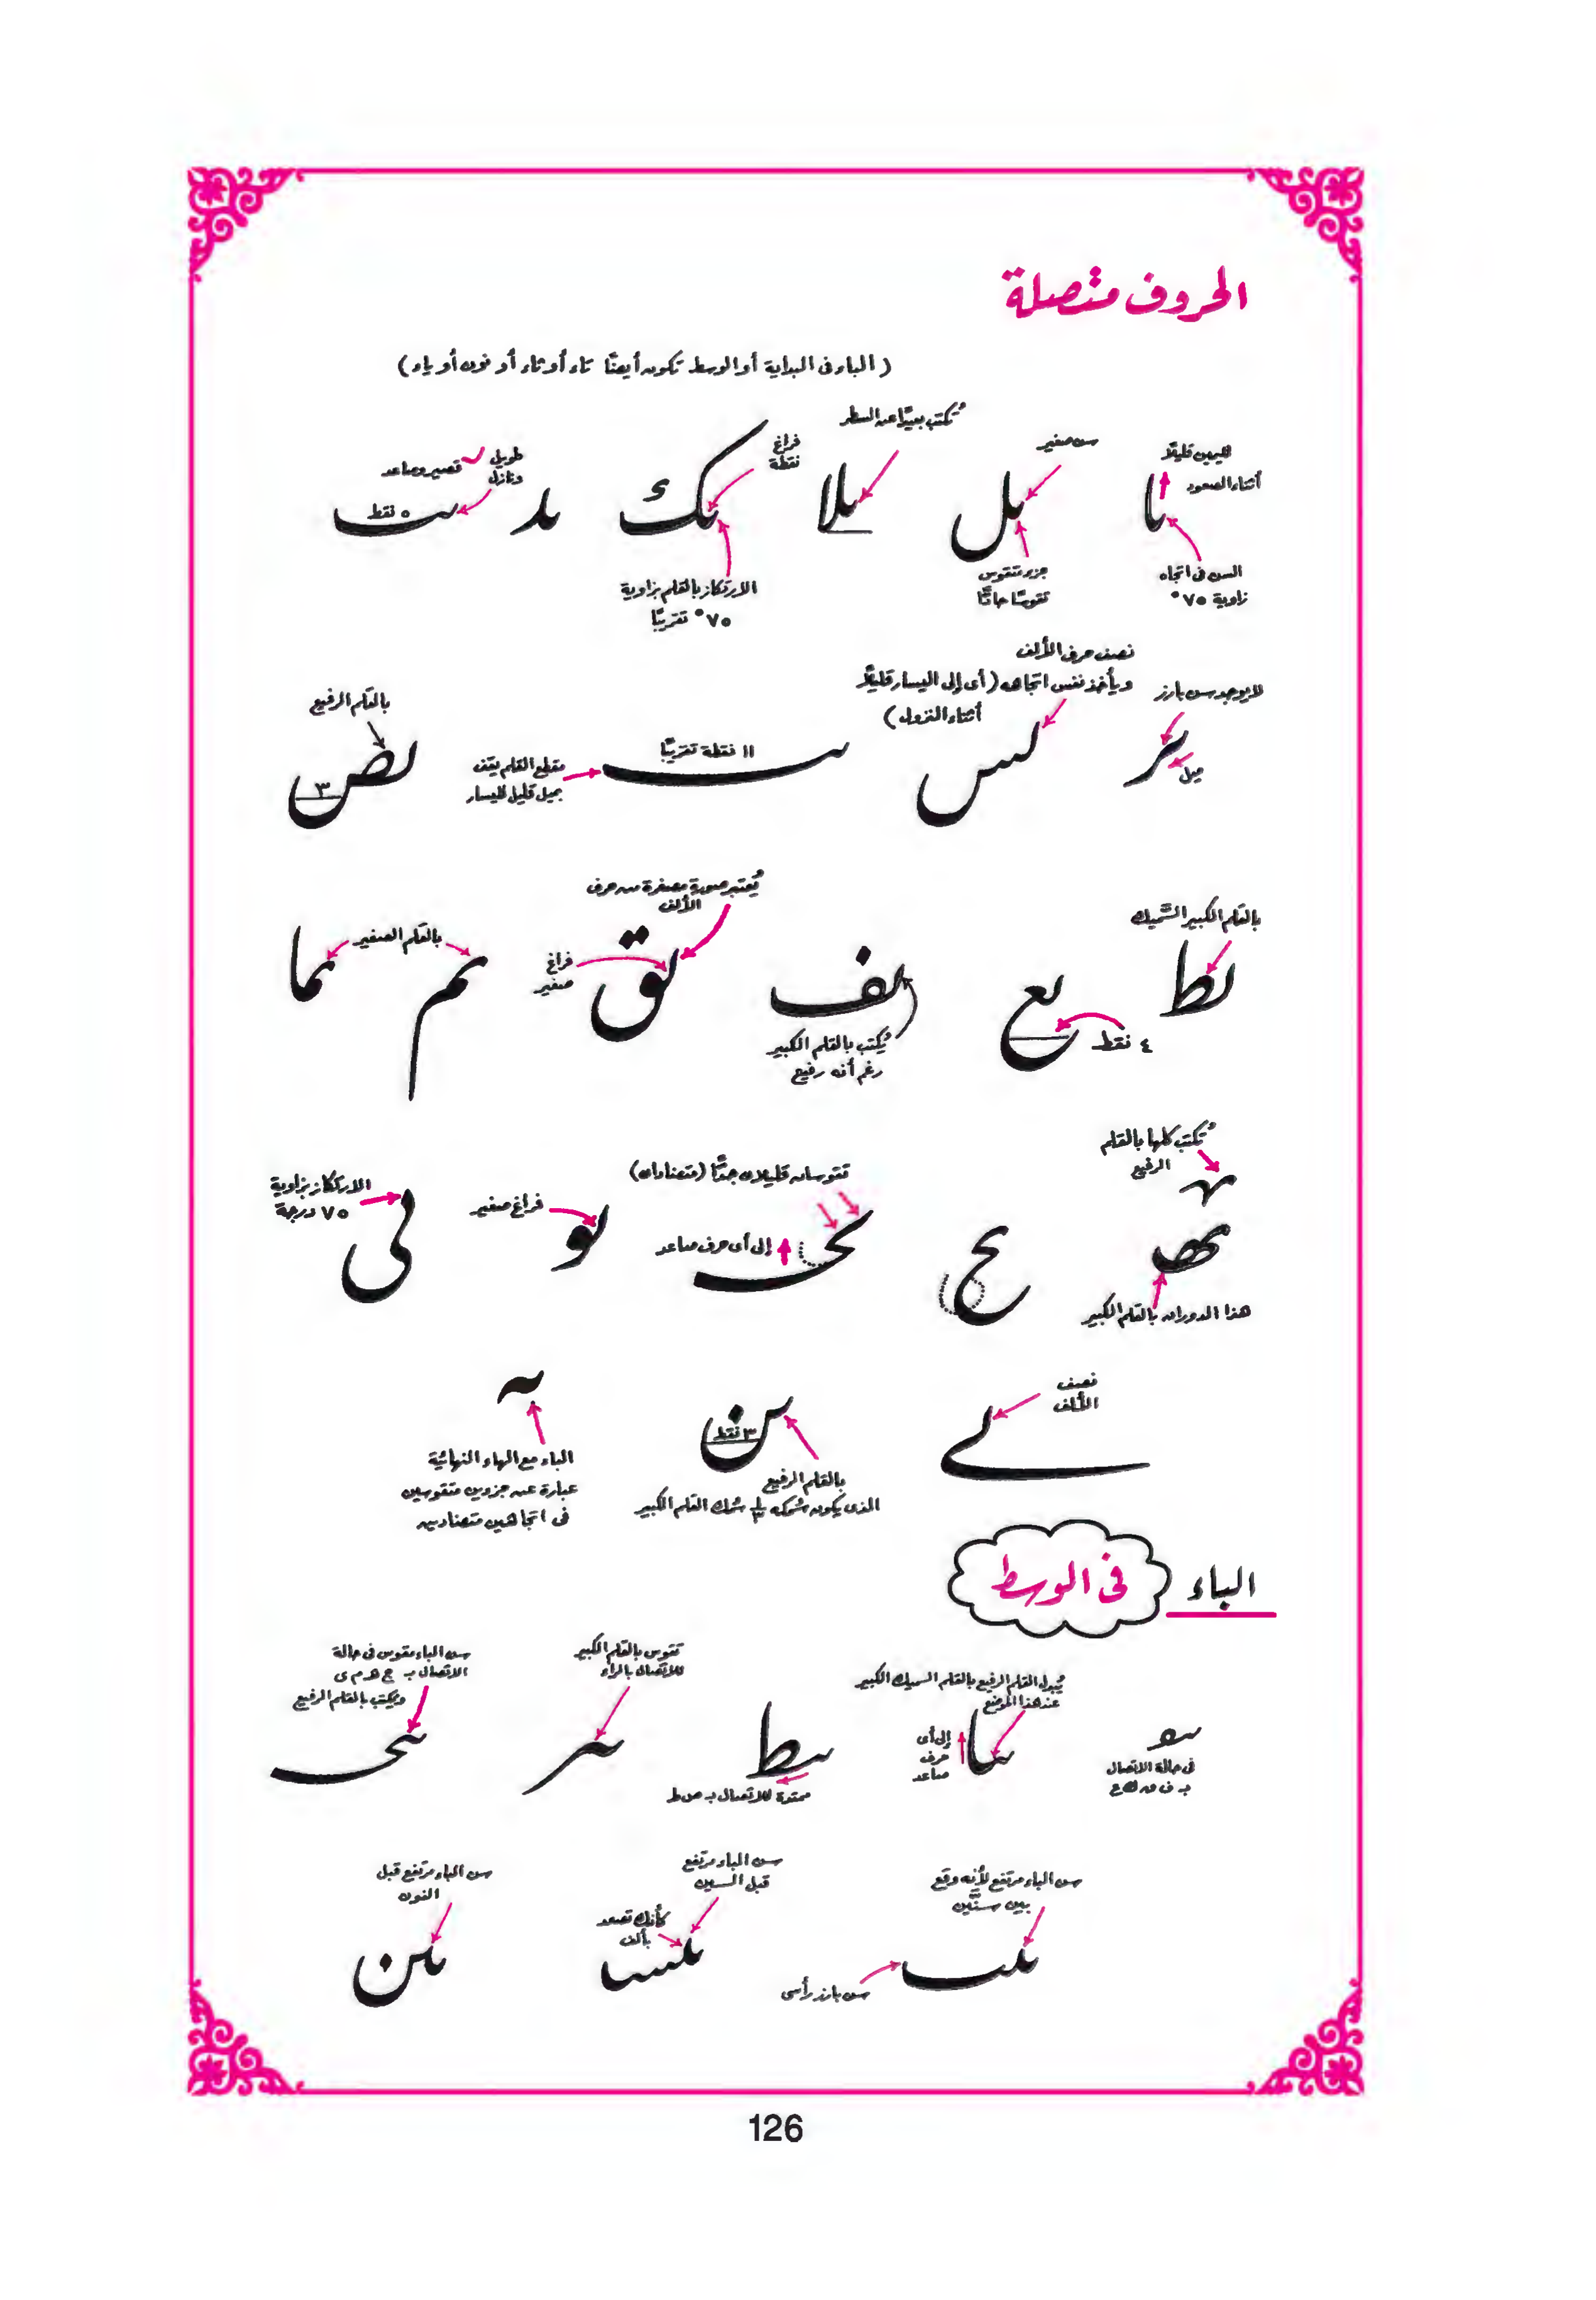 الحروف متصلة
(الباء فى البداية أو الوسط تكون أيضًا تاء أو ثاء أو نون أو ياء)
لليمين قليلًا
أثناء الصعود
نا
السن فى اتجاه
زاوية ٧٥°
سن صغير
بل
جزء متقوس
تقوسًا حادًّا
تُكتب بعيدًا عن السطر
بلا
فراغ
نقطة
بك
الارتكاز بالقلم بزاوية
٧٥° تقريبًا
بد
طويل
ونازل
قصير وصاعد
٥ نقط
بت
لا يوجد سن بارز
بر
ميل
نصف حرف الألف
ويأخذ نفس اتجاهه (أى إلى اليسار قليلًا
أثناء النزول)
بس
١١ نقطة تقريبًا
مقطع القلم يقف
بميل قليل لليسار
بالقلم الرفيع
بص
٣
بالقلم الكبير السَّميك
بط
بع
٤ نقط
بف
يُكتب بالقلم الكبير
رغم أنه رفيع
يُعتبر صورة مصغرة من حرف
الألف
بق
فراغ
صغير
بالقلم الصغير
بم
بما
تُكتب كلها بالقلم
الرفيع
بھ
هذا الدوران بالقلم الكبير
بح
تقوسان قليلان جدًّا (متضادان)
إلى أى حرف صاعد
فراغ صغير
بو
الارتكاز بزاوية
٧٥ درجة
بى
نصف
الألف
بے
بن
٣ نقط
بالقلم الرفيع
الذى يكون سُمكه ⅓ سُمك القلم الكبير
به
الباء مع الهاء النهائية
عبارة عن جزءين متقوسين
فى اتجاهين متضادين
الباء فى الوسط
فى حالة الاتصال
يُبدل القلم الرفيع بالقلم السميك الكبير
عند هذا الموضع
إلى أى
حرف
صاعد
ممتدة للاتصال بـ ص ط
تقوس بالقلم الكبير
للاتصال بالراء
سن الباء مقوس فى حالة
الاتصال بـ ح هـ م ى
ويكتب بالقلم الرفيع
سن الباء مرتفع لأنه وقع
بين سنَّين
سن بارز رأسى
سن الباء مرتفع
قبل السين
كأنك تصعد
بألف
سن الباء مرتفع قبل
النون
126